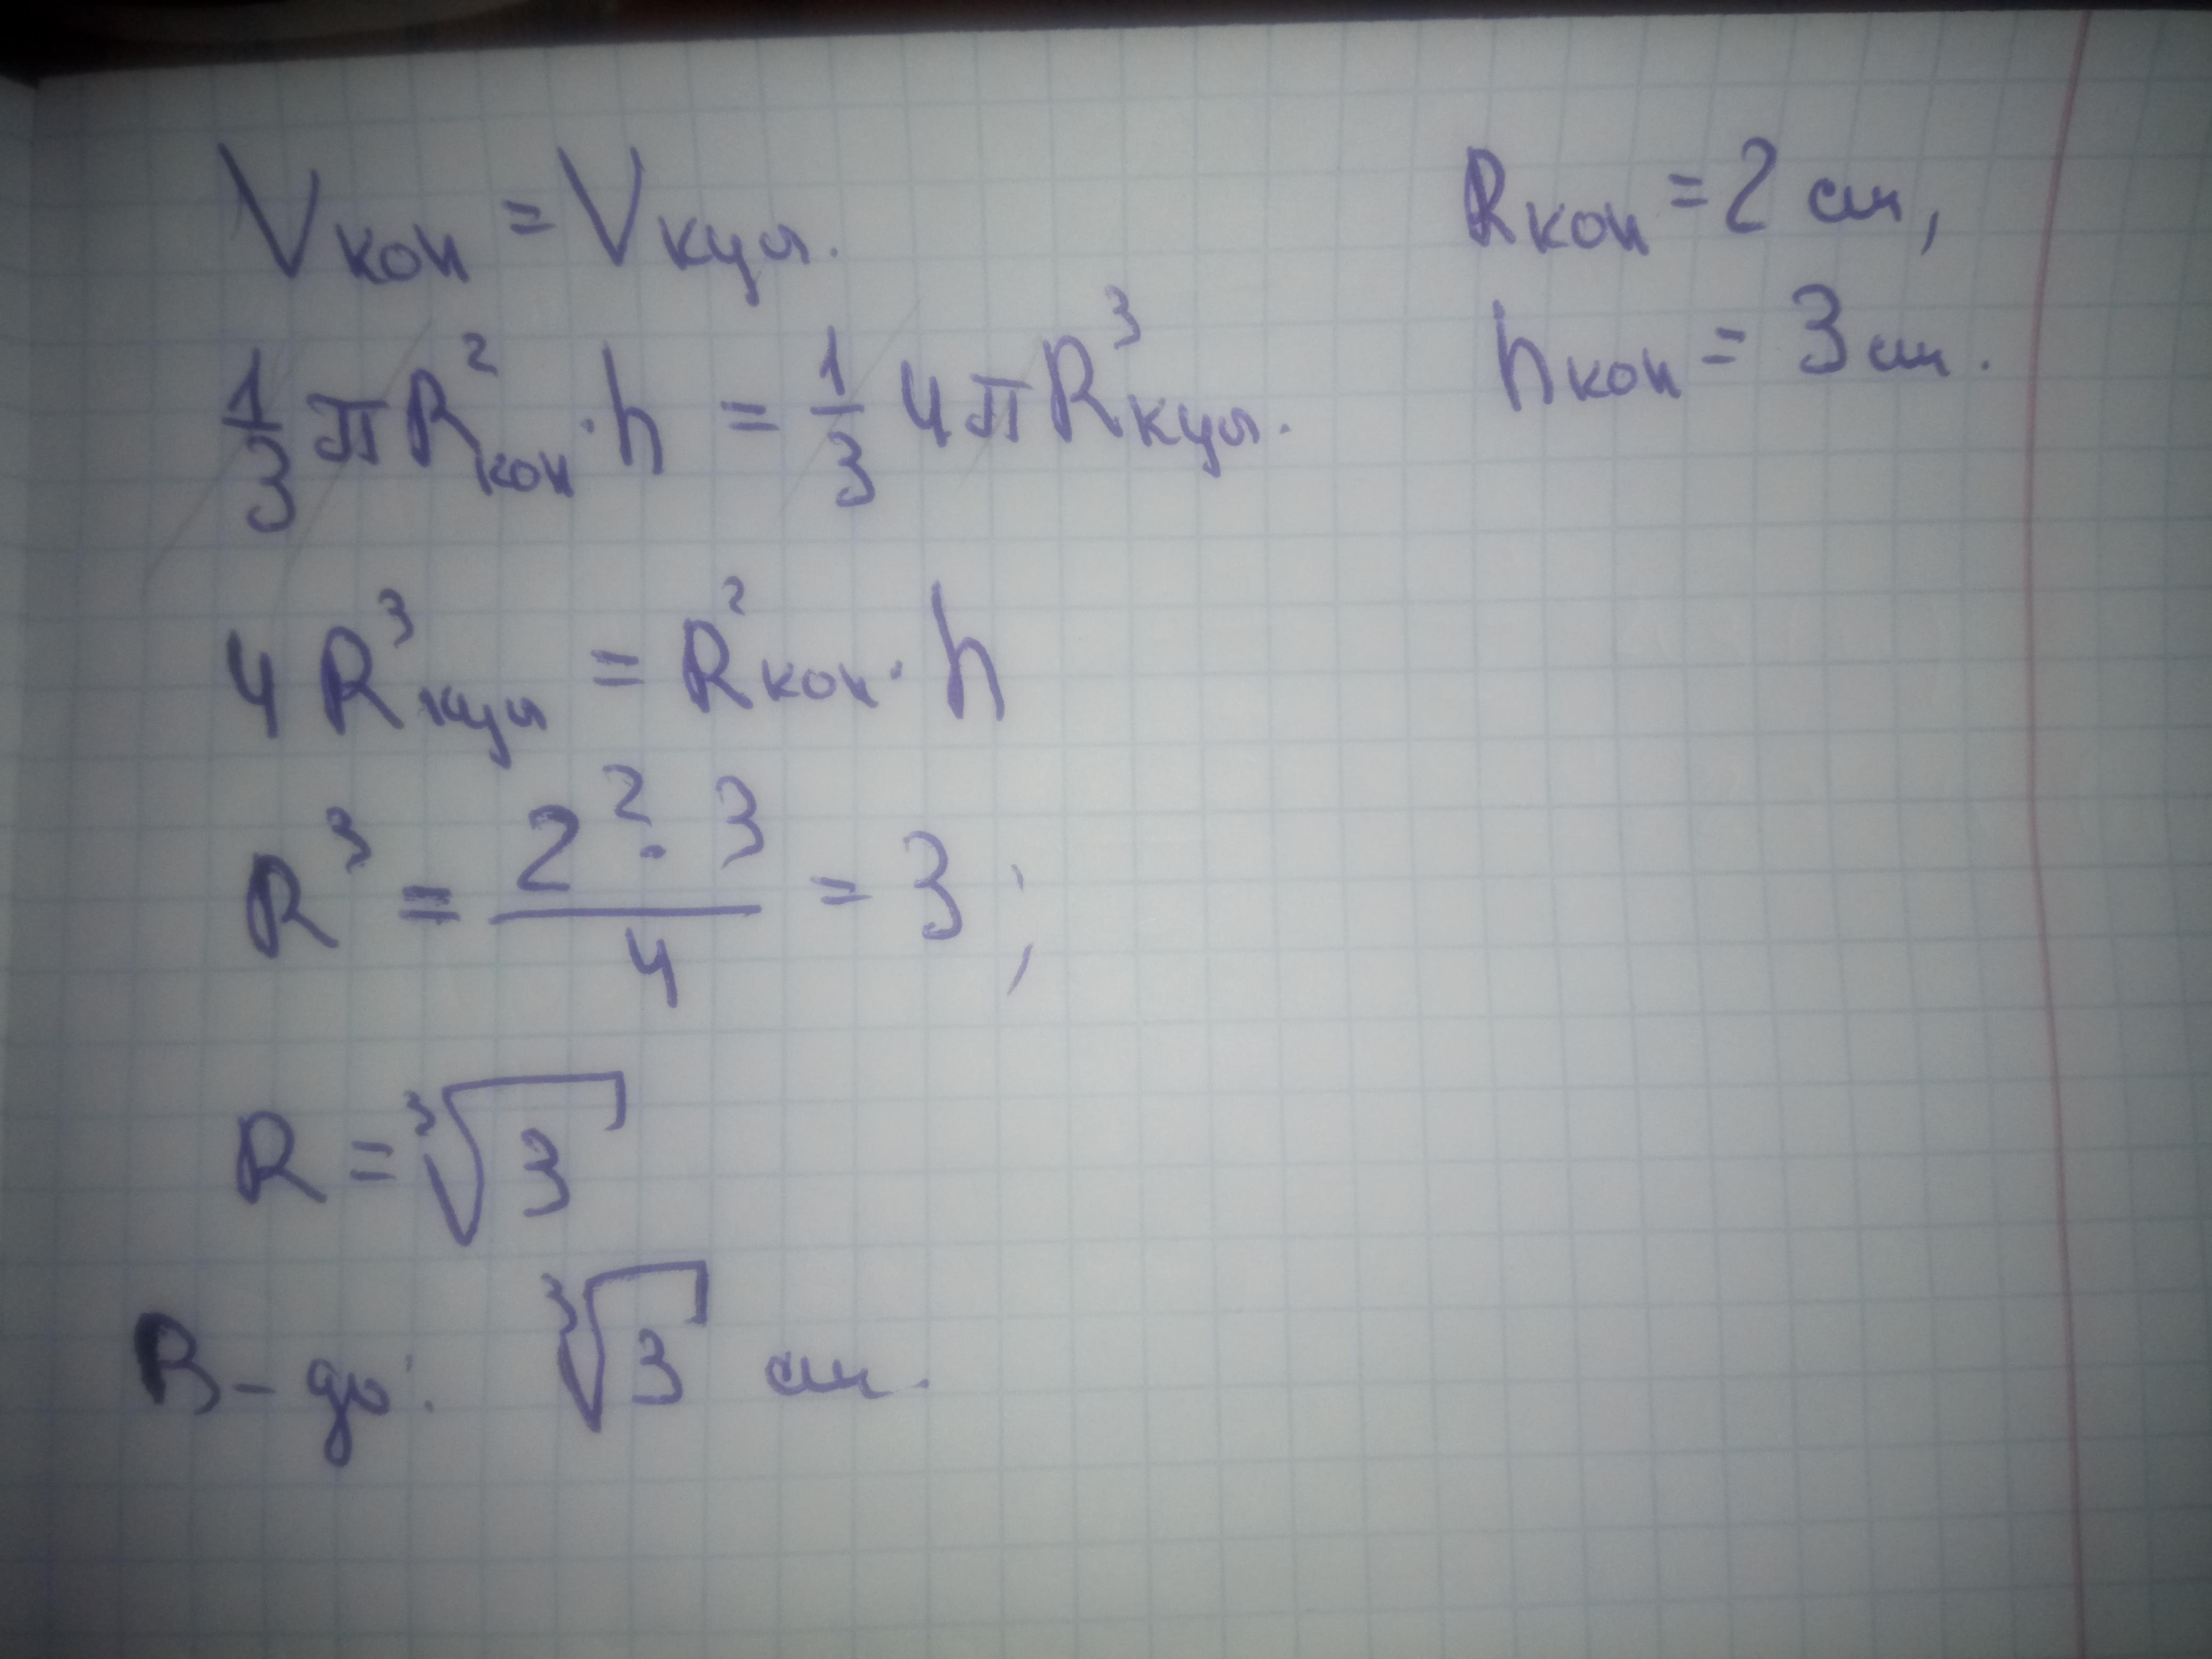 Vкон = Vкул.
Rкон = 2 см,
hкон = 3 см.
1/3 πR²кон · h = 1/3 4πR³кул.
4R³кул = R²кон · h
R³ = (2² · 3)/4 = 3;
R = ∛3
В-дь: ∛3 см.